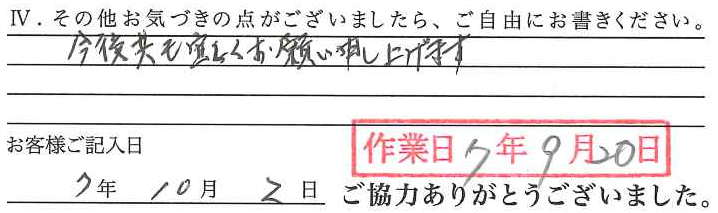 Ⅳ．その他お気づきの点がございましたら、ご自由にお書きください。
今後共も宜しくお願い申し上げます
お客様ご記入日
作業日 7年 9月20日
7年 10月 2日
ご協力ありがとうございました。